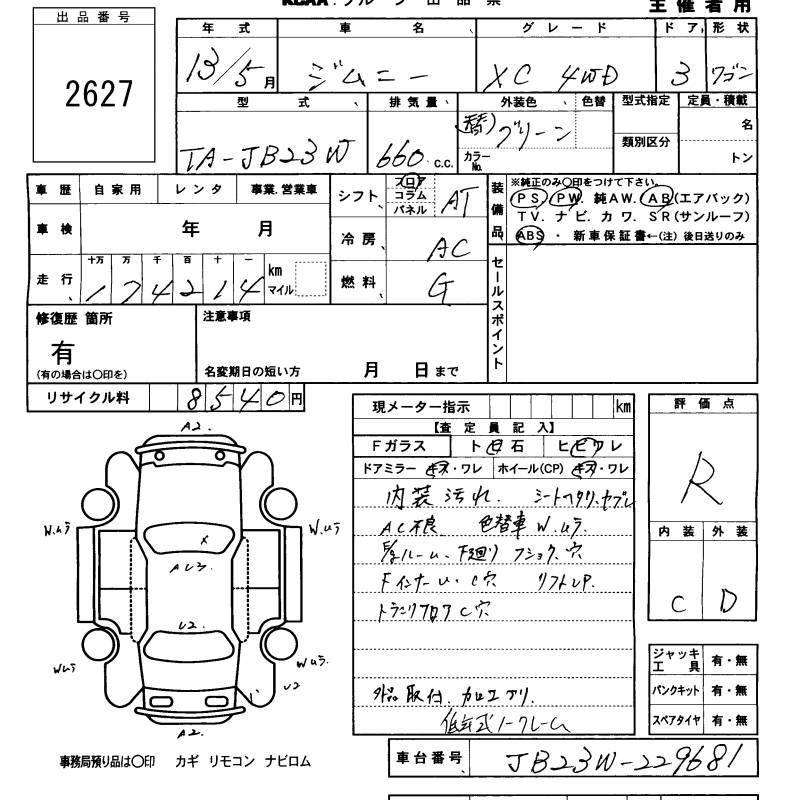 主催者用
出品番号
2627
年式 車名 グレード ドア 形状
13/5月 ジムニー XC 4WD 3 ワゴン
型式 排気量 外装色 色替 型式指定 定員・積載
TA-JB23W 660 c.c. 替)グリーン
カラーNo. 類別区分 名
トン
車歴 自家用 レンタ 事業.営業車
車検 年 月
走行 十万 万 千 百 十 一
174214 km
マイル
シフト フロア コラム パネル AT
冷房 AC
燃料 G
装備品
※純正のみ○印をつけて下さい。
PS. PW. 純AW. AB(エアバック)
TV. ナビ. カワ. SR(サンルーフ)
ABS ・ 新車保証書←(注) 後日送りのみ
セールスポイント
修復歴 箇所
有
(有の場合は○印を)
注意事項
名変期日の短い方 月 日まで
リサイクル料 8540円
現メーター指示 km
【査定員記入】
Fガラス ト 石 ヒビワレ
ドアミラー キズ・ワレ ホイール(CP) キズ・ワレ
内装汚れ. シートヘタリ.ヤブレ
AC不良 色替車 W.ムラ.
ルーム. 下廻り フショク.穴
Fインナーム.C穴 リフトUP.
トランクフロアC穴.
外品取付.加工アリ.
評価点
R
内装 外装
C D
ジャッキ
工具 有・無
パンクキット 有・無
スペアタイヤ 有・無
A2.
W.ムラ
W.ムラ
x
U2.
Wムラ
Wムラ.
U2
A2.
事務局預り品は○印 カギ リモコン ナビロム
車台番号 JB23W-229681